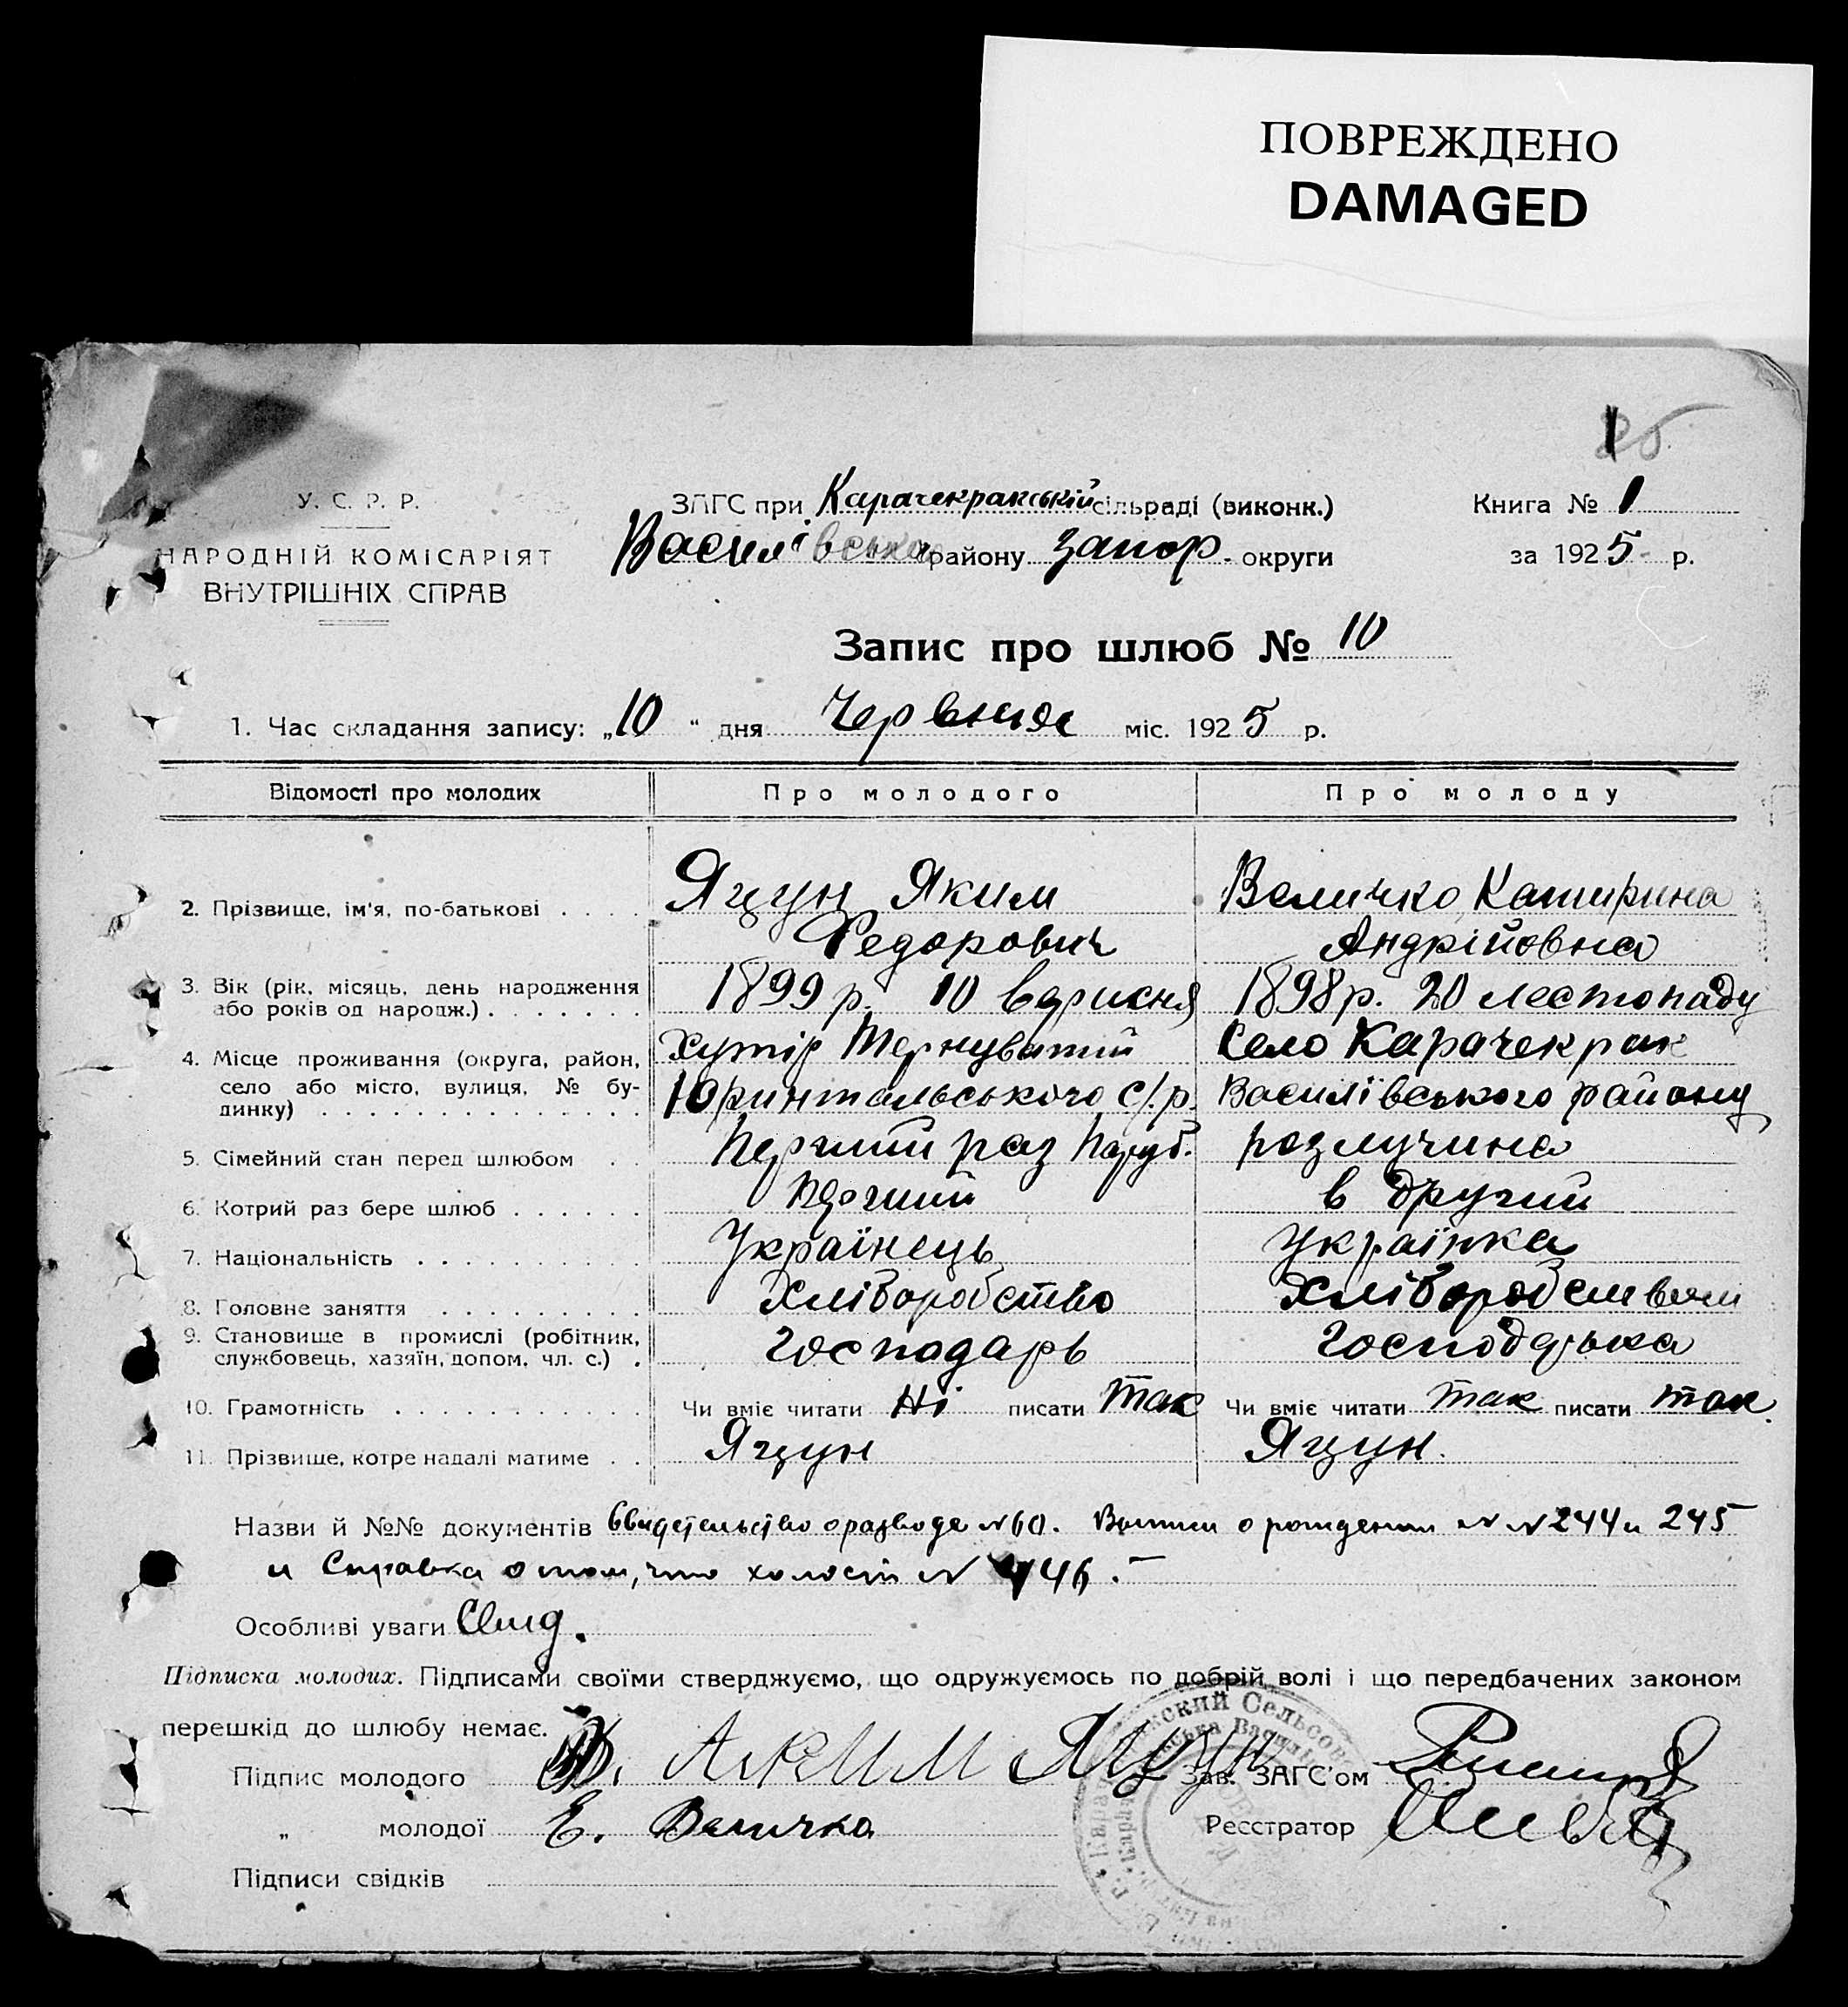 ПОВРЕЖДЕНО
DAMAGED
У. С. Р. Р.
НАРОДНІЙ КОМІСАРІЯТ
ВНУТРІШНІХ СПРАВ
ЗАГС при Карачекракській сільраді (виконк.)
Василівська району Запор. округи
Книга № 1
за 1925 р.
Запис про шлюб № 10
1. Час складання запису: „10" дня Червния міс. 1925 р.
Відомості про молодих Про молодого Про молоду
2. Прізвище, ім'я, по-батькові . . . . Яцун Яким Величко Катирина
Федорович Андрійовна
3. Вік (рік, місяць, день народження 1899 р. 10 вересня 1898 р. 20 лестопаду
або років од народж.) . . . . . . .
4. Місце проживання (округа, район, Хутір Тернуватий Село Карачекрак
село або місто, вулиця, № бу- с/.р. Василівського району
динку) . . . . . . . . . . . . . .
5. Сімейний стан перед шлюбом . . Перчий раз Паруб. розлучина
6. Котрий раз бере шлюб . . . . . . Перчий в другий
7. Національність . . . . . . . . . . Українець Українка
8. Головне заняття . . . . . . . . . Хліборобство
9. Становище в промислі (робітник,
службовець, хазяїн, допом. чл. с.) . Господарь Господарька
10. Грамотність . . . . . . . . . . . Чи вміє читати Ні писати Так Чи вміє читати Так писати Так
11. Прізвище, котре надалі матиме . . Яцун Яцун.
Назви й №№ документів Свидетельство о разводе №60. Выписи о рождении №№244 и 245
и Справка о том, что холост №446.
Особливі уваги
Підписка молодих. Підписами своїми стверджуємо, що одружуємось по добрій волі і що передбачених законом
перешкід до шлюбу немає.
Підпис молодого Аким Яцун Зав. ЗАГС'ом
„ молодої Е. Величко Реєстратор
Підписи свідків